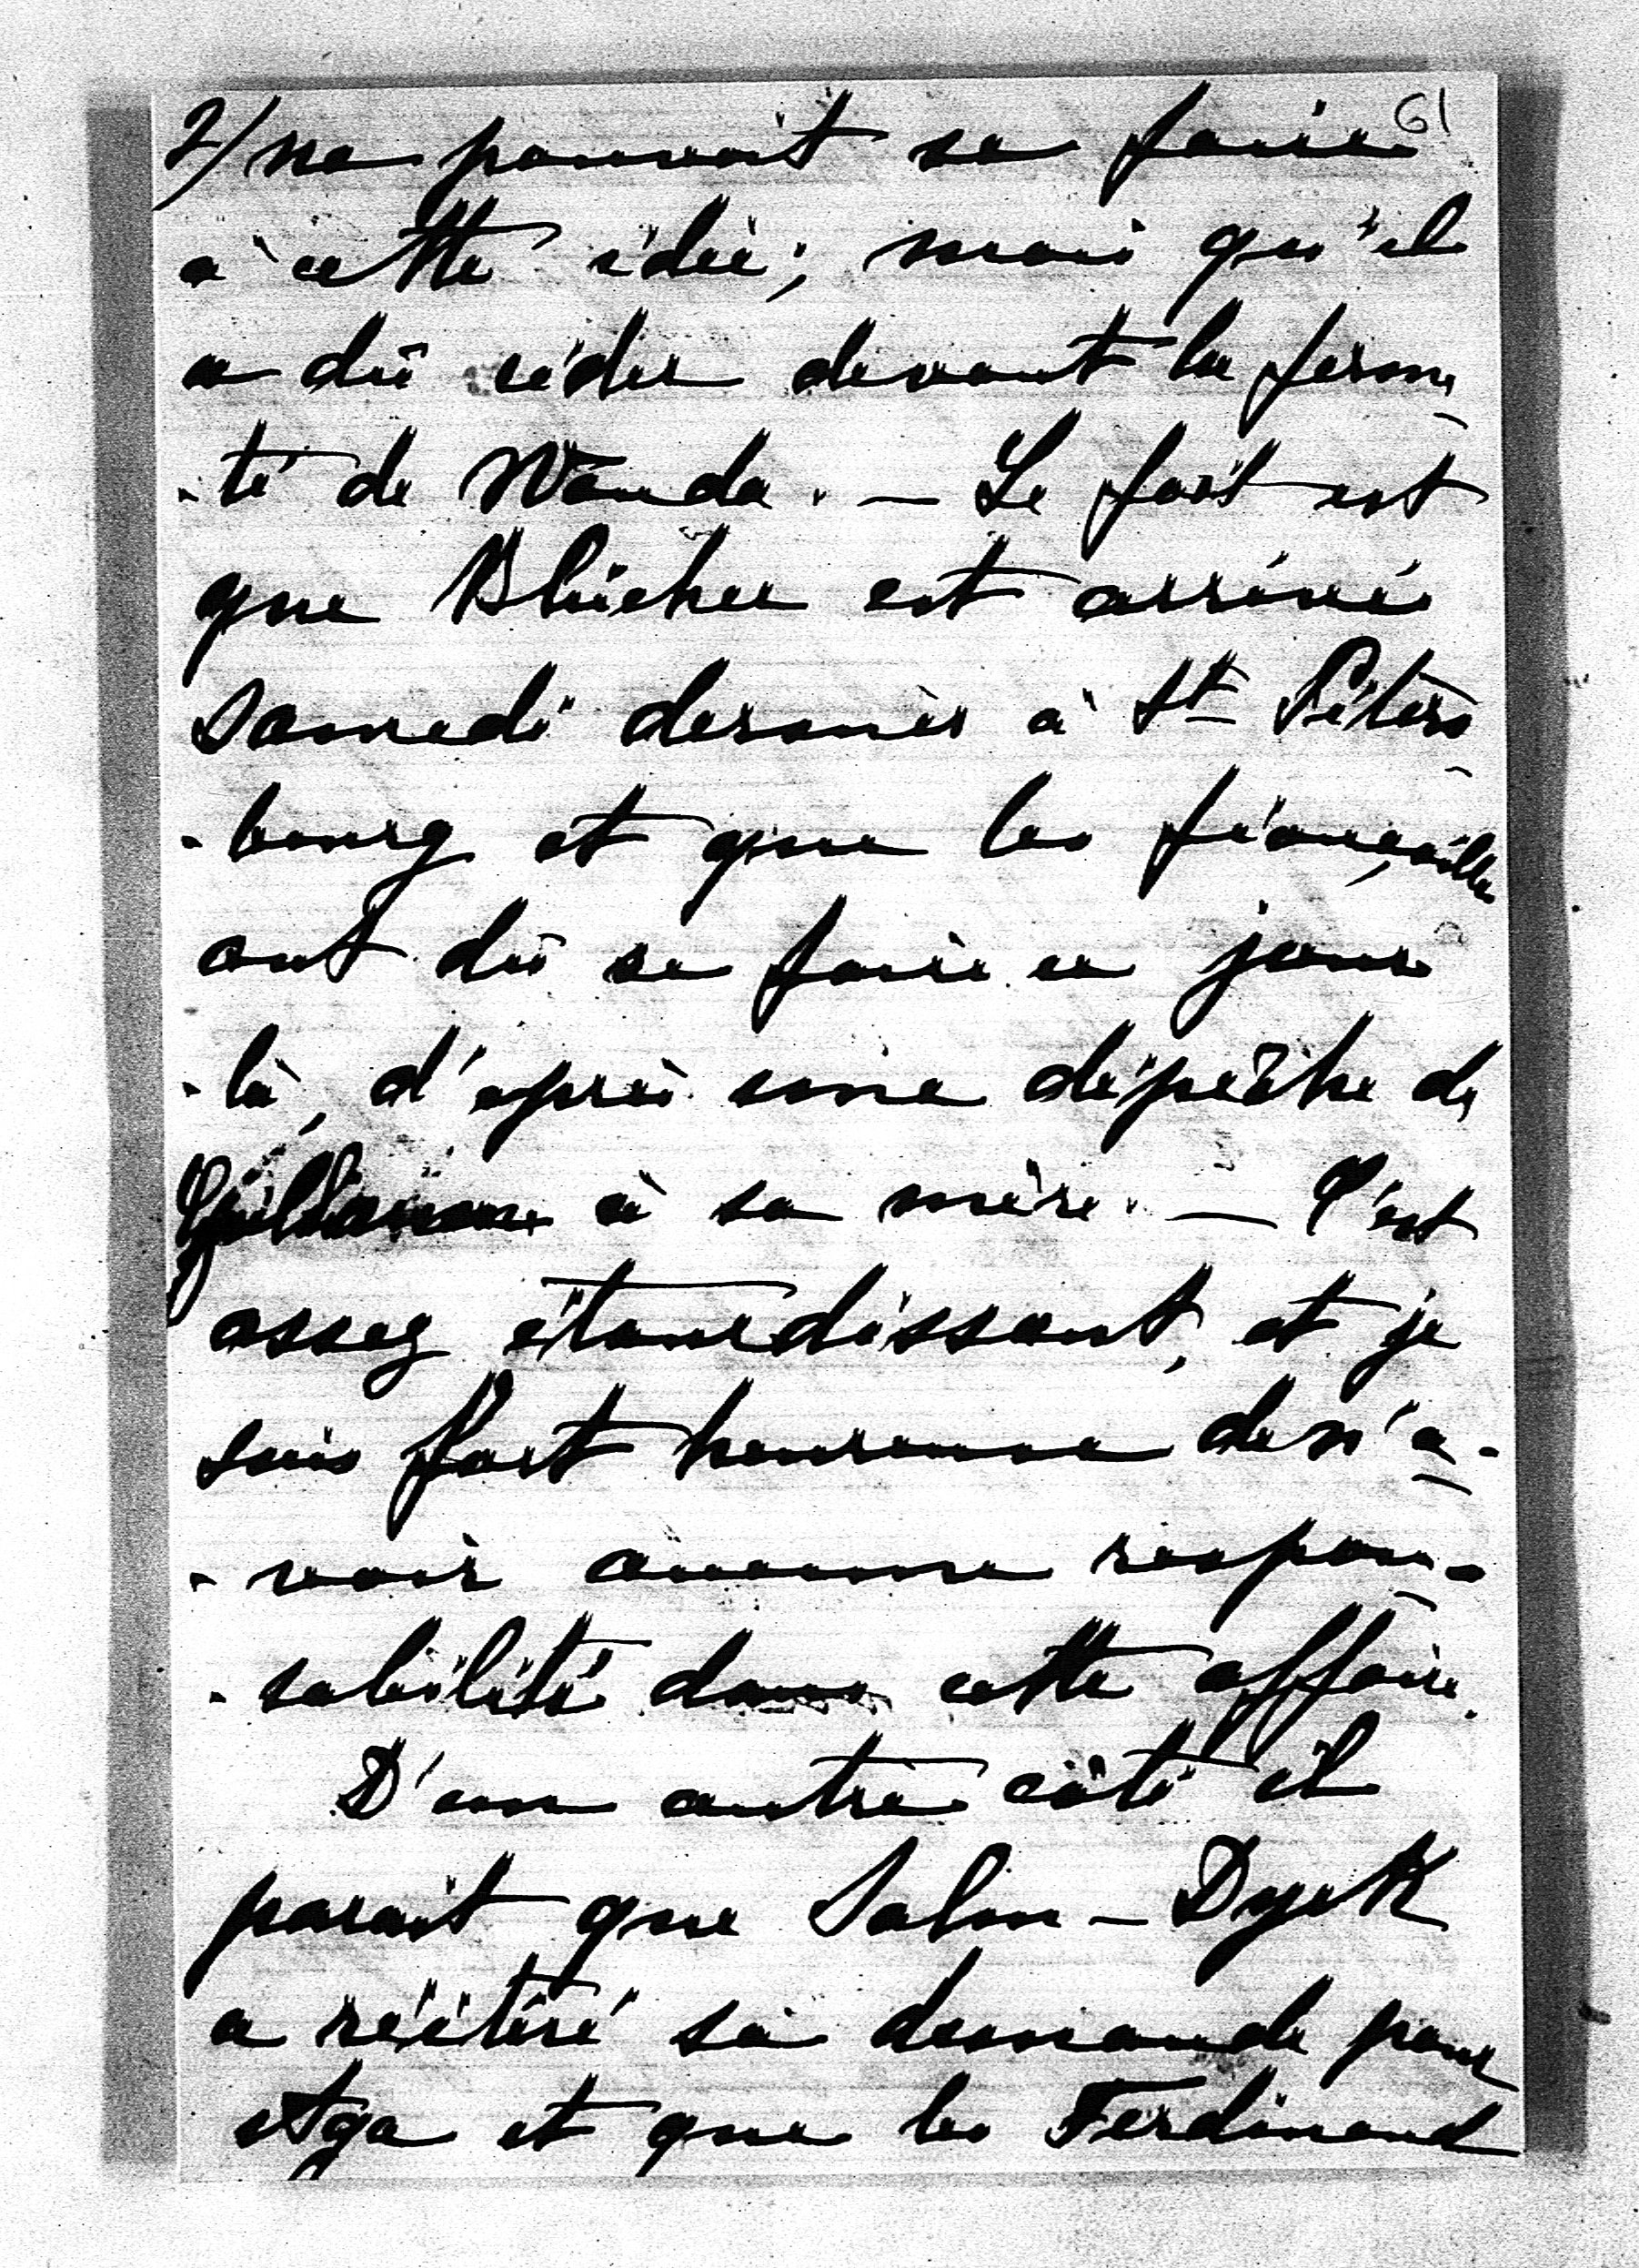 61
2/ ne pouvait se faire
à cette idée; mais qu'il
a dû céder devant la ferme-
-té de Wanda. — Le fait est
que Blücher est arrivé
Samedi dernier à St Péters-
-bourg et que les fiançailles
ont dû se faire ce jour
-là, d'après une dépêche de
à sa mère. — C'est
assez étourdissant, et je
suis fort heureuse de n'a-
-voir aucune respon-
-sabilité dans cette affaire.
D'un autre côté il
parait que Salm-Dyck
a réitéré sa demande pour
Aga et que les Ferdinand